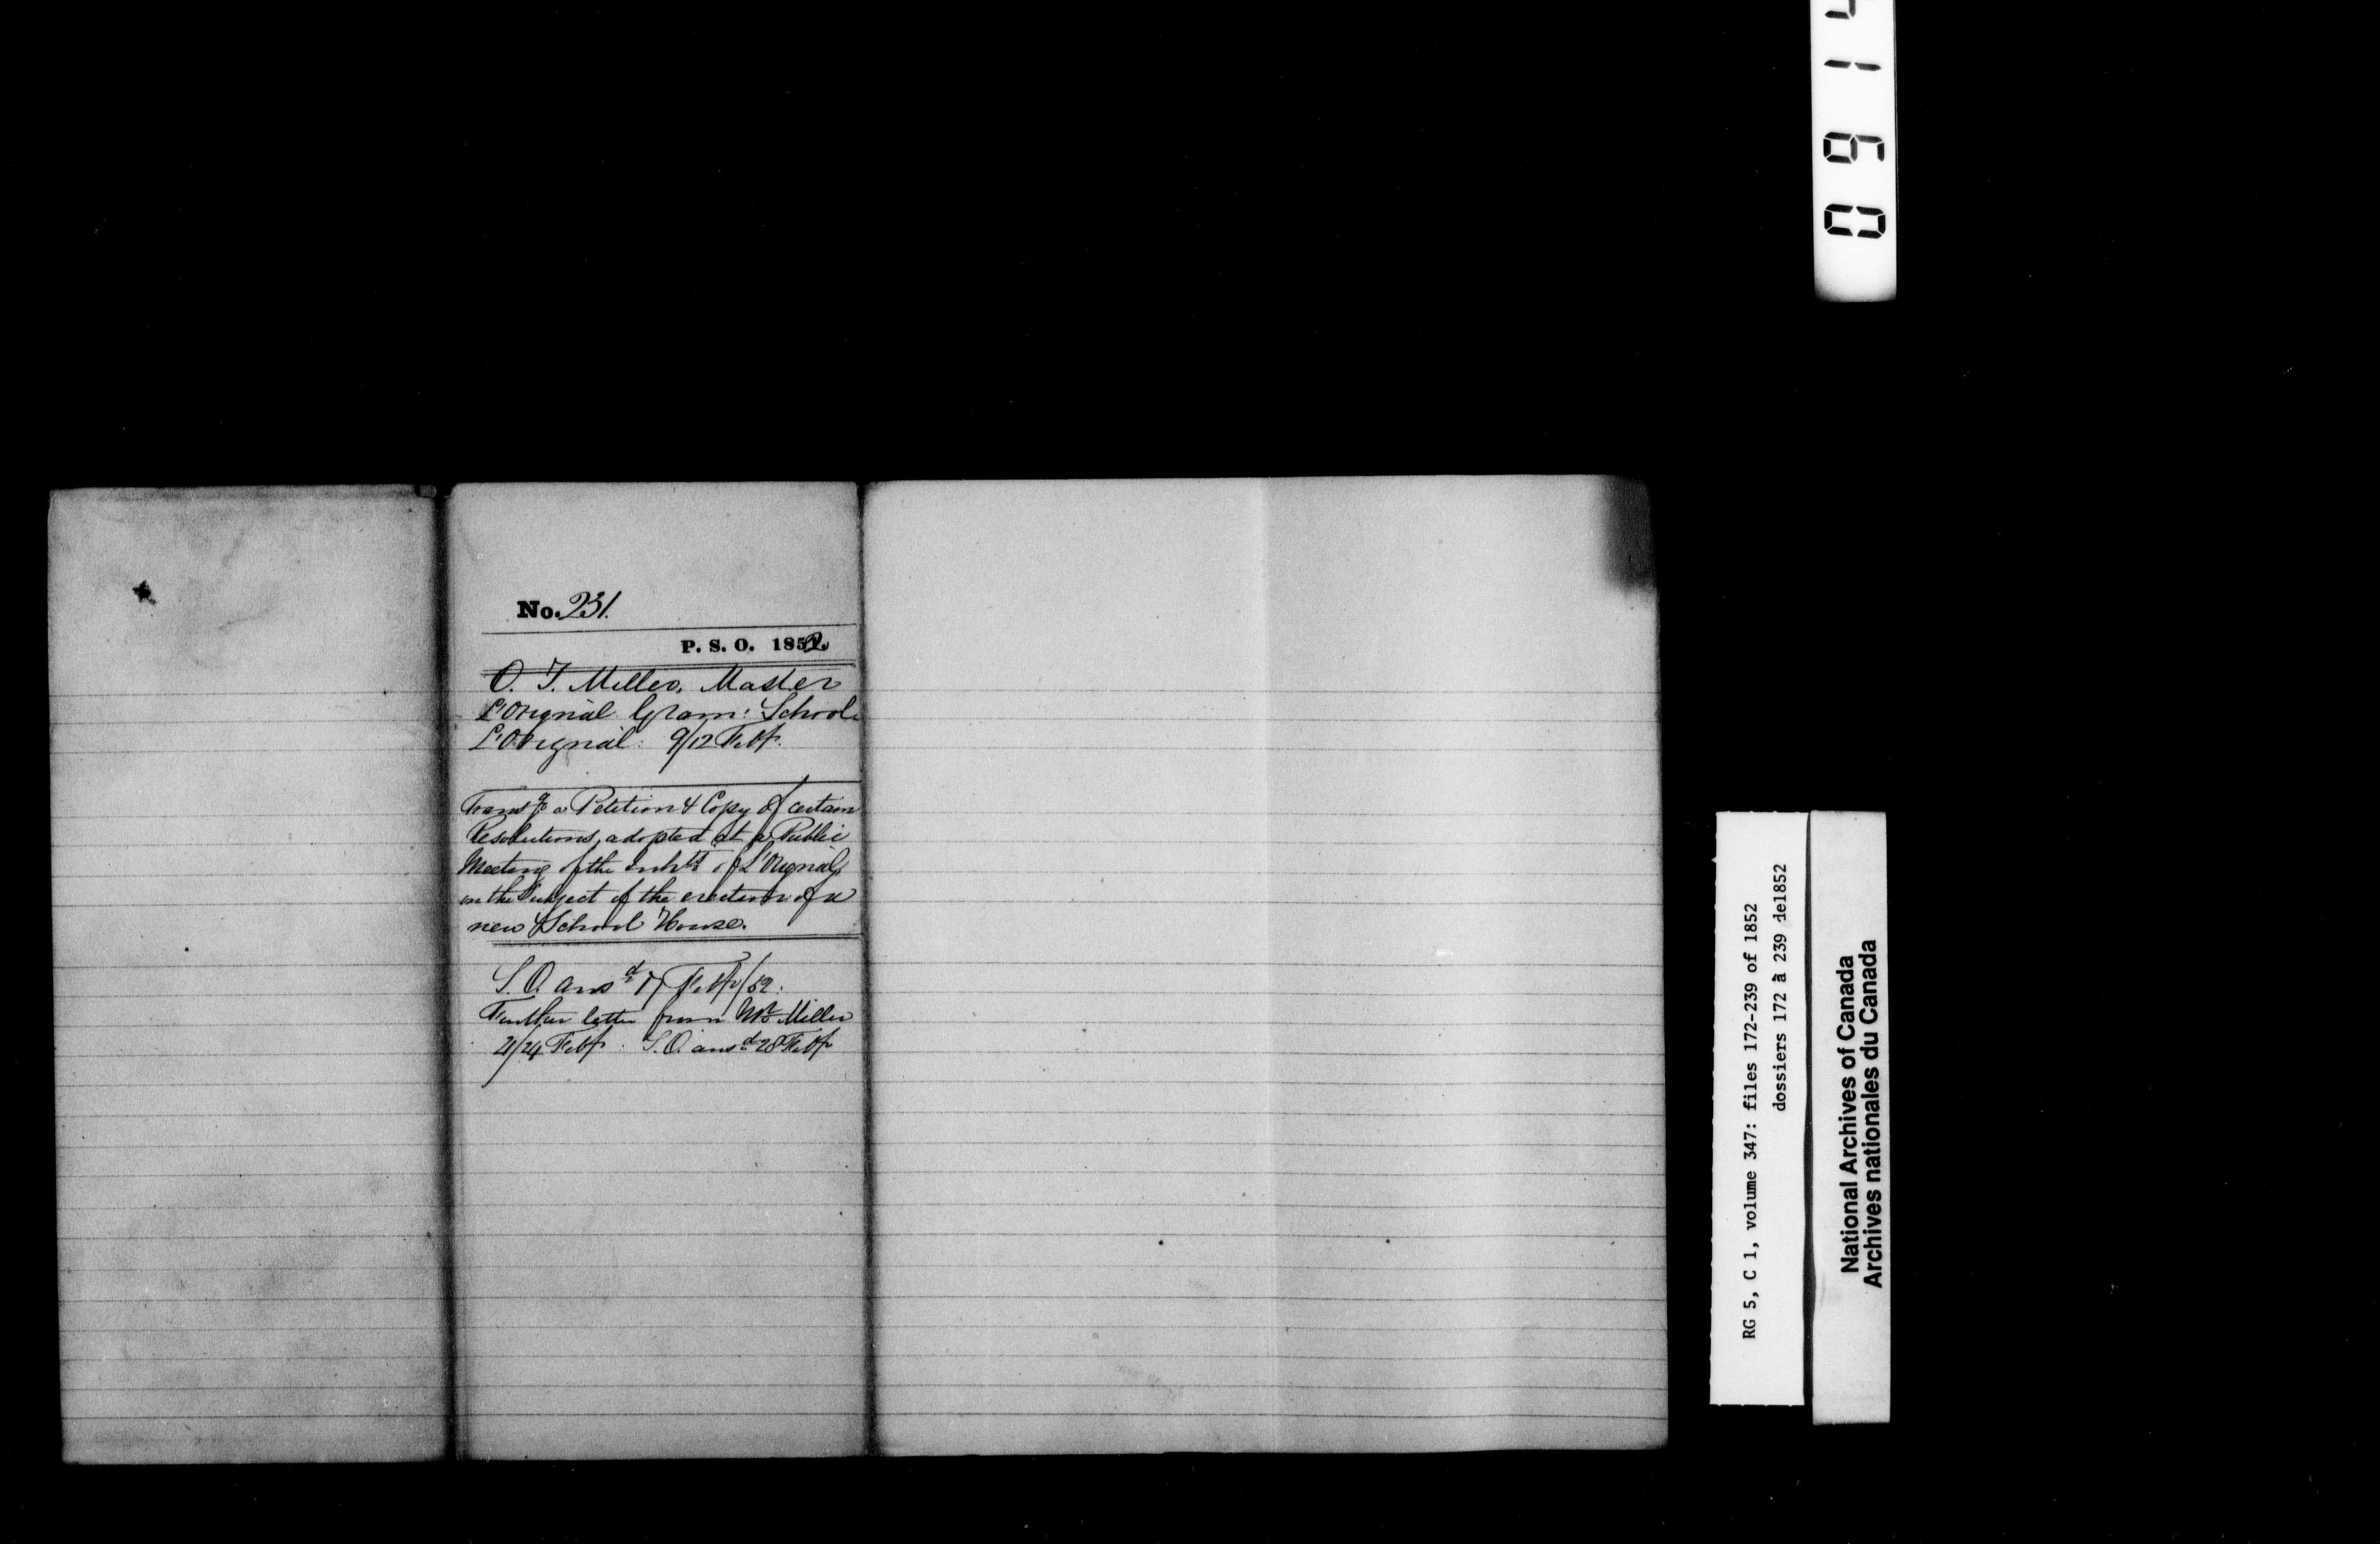 No. 231.
P. S. O. 1852.
O. T. Miller, Master
L'Orignal Gram: School
L'Orignal: 9/12 Feby.
Transg a Petition & Copy of certain
Resolutions, adopted at a Public
Meeting of the inhts of L'Orignal,
on the subject of the erection of a
new School House.
S.O. ansd 17 Feby/52.
Further letter from Mr Miller
21/24 Feby. S.O. ansd 28 Feby
RG 5, C 1, volume 347: files 172-239 of 1852
dossiers 172 à 239 de1852
National Archives of Canada
Archives nationales du Canada